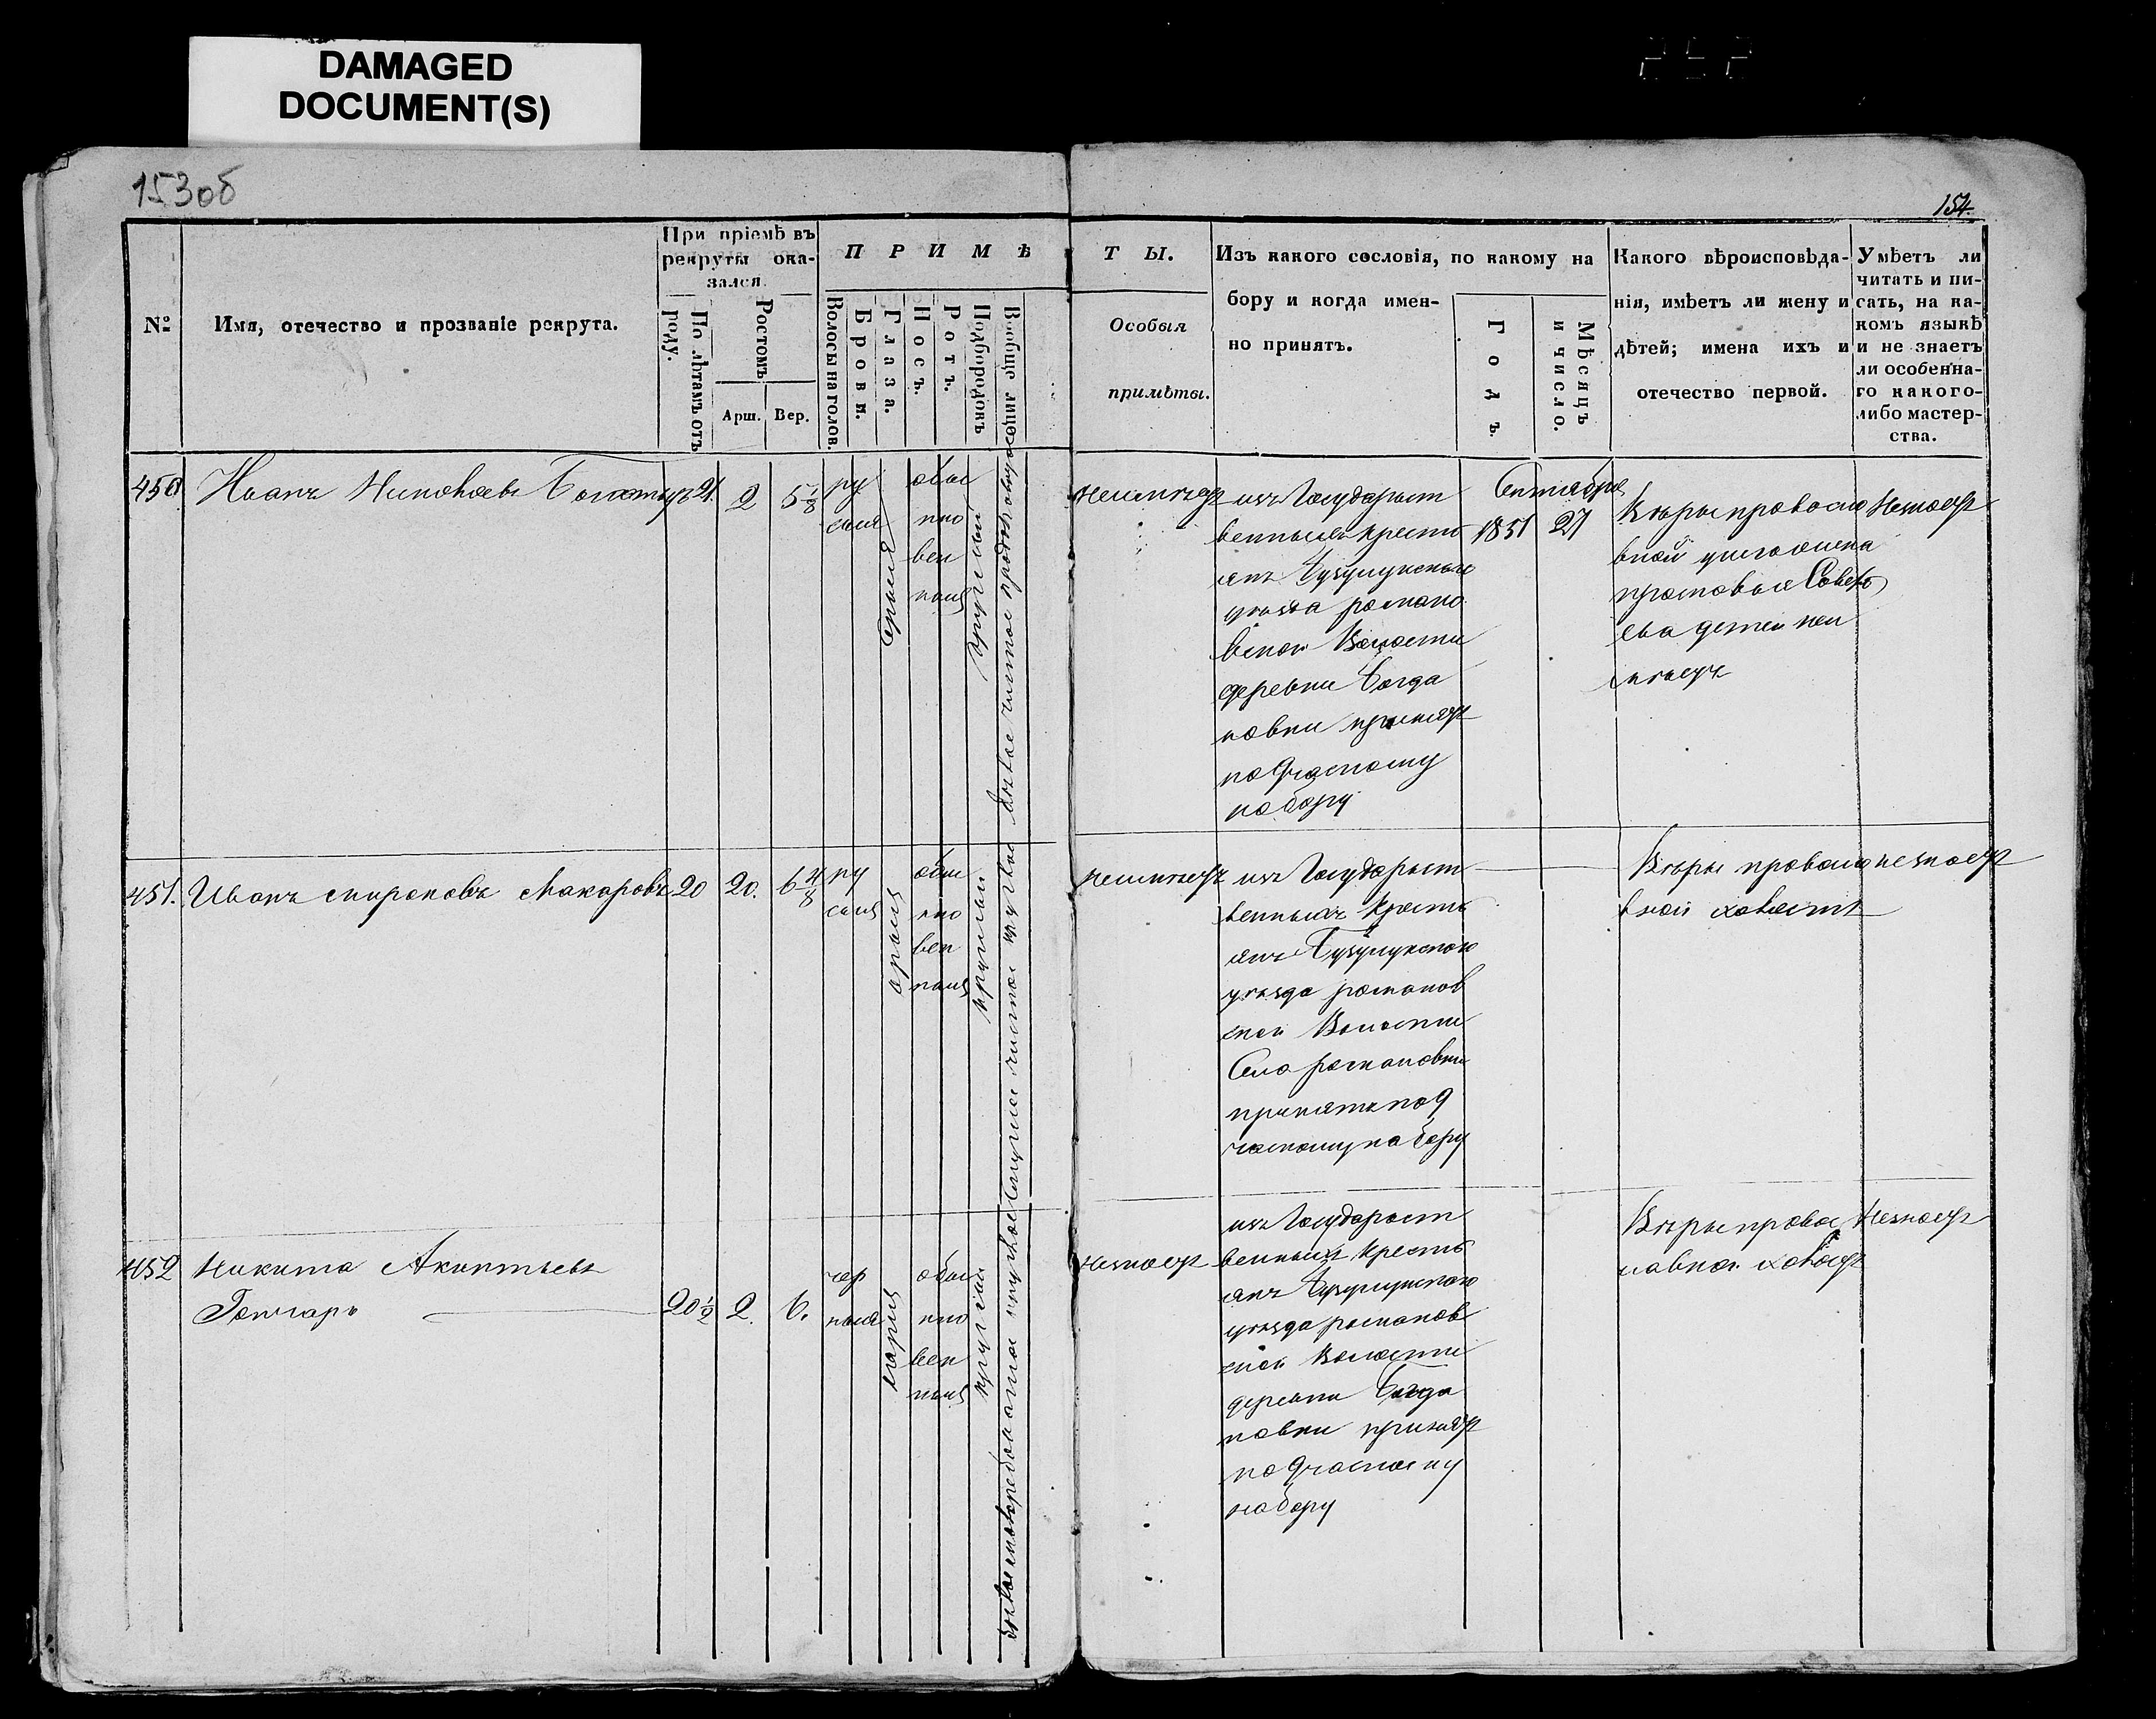 DAMAGED
DOCUMENT(S)
153об
154.
№
Имя, отечество и прозваніе рекрута.
При пріемѣ въ
рекруты ока-
зался.
По лѣтамъ отъ
роду.
Ростомъ
Арш.
Вер.
П Р И М Ѣ
Волосы на голов.
Брови.
Глаза.
Носъ.
Ротъ.
Подбородокъ
Вообще лице
Т Ы.
Особыя
примѣты.
Изъ какого сословія, по какому на
бору и когда имен-
но принятъ.
Годъ.
Мѣсяцъ
и число.
Какого вѣроисповѣда-
нія, имѣетъ ли жену и
дѣтей; имена ихъ и
отечество первой.
Умѣетъ ли
читать и пи-
сать, на ка-
комъ языкѣ
и не знаетъ
ли особенна-
го какого-
либо мастер-
ства.
450
Иванъ
21
2
5 1/8
ру
сыя
серыя
обык
нно
вен
ныя
круглый
неимѣетъ
изъ Государст
венныхъ кресть
янъ Бузулукскаго
уѣзда романо
вской Волости
деревни Богда
новки принятъ
по частному
набору
Сентября
1851
27
Вѣры правосла
вной у него жена
ева детей неи
мѣетъ
Незнаетъ
451.
Иванъ Мироновъ Макаровъ
20
20.
6 4/8
ру
сыя
обык
нно
вен
ныя
круглый
неимѣетъ
изъ Государст
венныхъ Кресть
янъ Бузулукскаго
уѣзда романов
ской Волости
Села романовки
принятъ по ч
частному набору
Вѣры правосла
вной холостъ
незнаетъ
452
Никита
Гончаръ
20 1/2
2.
6.
чер
ныя
карія
обык
нно
вен
ныя
круглый
изъ Государст
венныхъ Кресть
янъ Бузулукскаго
уѣзда романов
ской Волости
деревни Богда
новки принятъ
по частному
набору
Вѣры правос
лавной холостъ
Незнаетъ